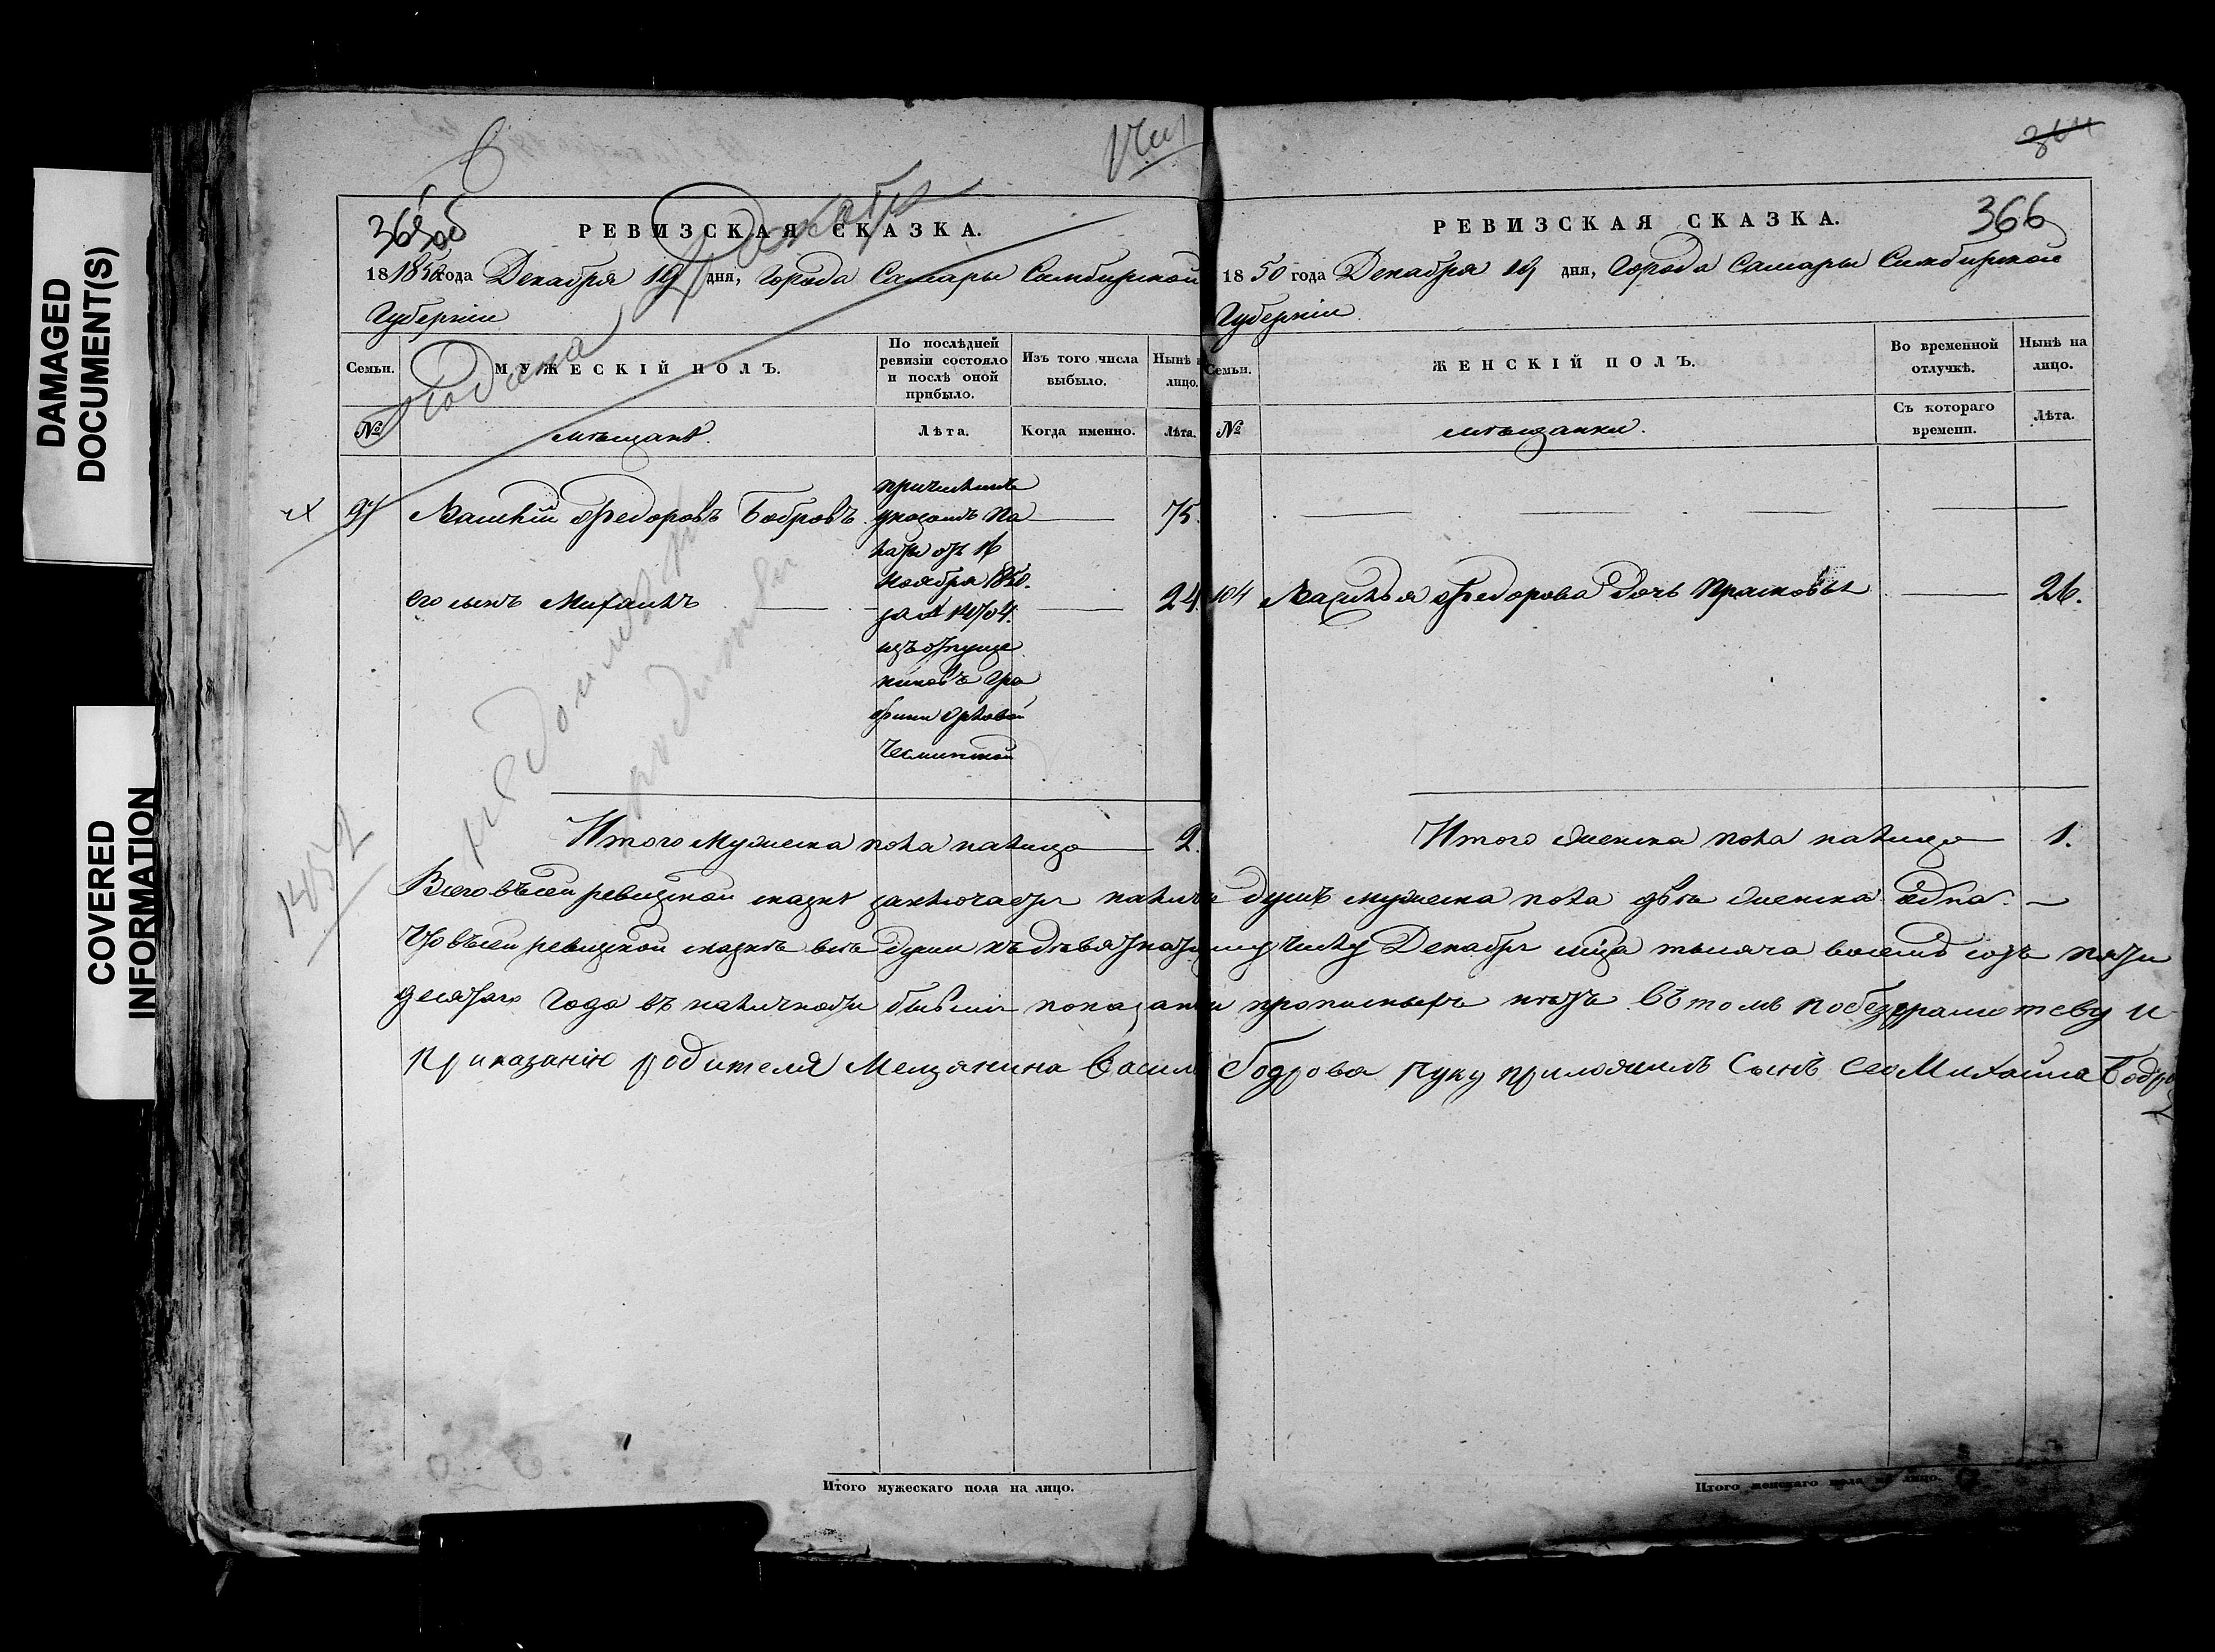 DAMAGED
DOCUMENT(S)
COVERED
INFORMATION
365об
РЕВИЗСКАЯ СКАЗКА.
18 1850 года Декабря 19 дня, города Самары Симбирской
Губерніи
Подана декабр
Семьи.
МУЖЕСКІЙ ПОЛЪ.
По послѣдней ревизіи состояло и послѣ оной прибыло.
Изъ того числа выбыло.
Нынѣ на лицо.
№
мѣщанѣ.
Лѣта.
Когда именно.
Лѣта.
Василій Федоровъ Бобровъ 75.
его сынъ Михаилъ 24
причислинъ
указомъ Па
латы отъ 16
Ноября 1850.
за № 14704.
изъ отпуще
никовъ Гра
фини Орловой
Чесминской
недоимо
Итого мужеска пола налицо 2.
364
РЕВИЗСКАЯ СКАЗКА.
366
18 50 года Декабря 19 дня, Города Самары Симбирской
Губерніи
Семьи.
ЖЕНСКІЙ ПОЛЪ.
Во временной отлучкѣ.
Нынѣ на лицо.
№
мѣщанки.
Съ котораго времени.
Лѣта.
104 Василья Федорова дочь Прасковья 26.
Итого женска пола налицо 1.
Всего въсей ревизской сказкѣ заключается наличныхъ душъ мужеска пола двѣ женска одна.
Что въсей ревизской сказкѣ всѣ души къ девятнатцатому числу Декабря мѣца тысяча восемъ сотъ пяти
десятаго года въ наличности бывшія показаны прописныхъ нѣтъ. Въ томъ побезграмотсву и
приказанію родителя Мещанина Васил Бодрова руку приложилъ Сынъ его Михайла Бодро
Итого мужескаго пола на лицо.
Итого женскаго пола на лицо.